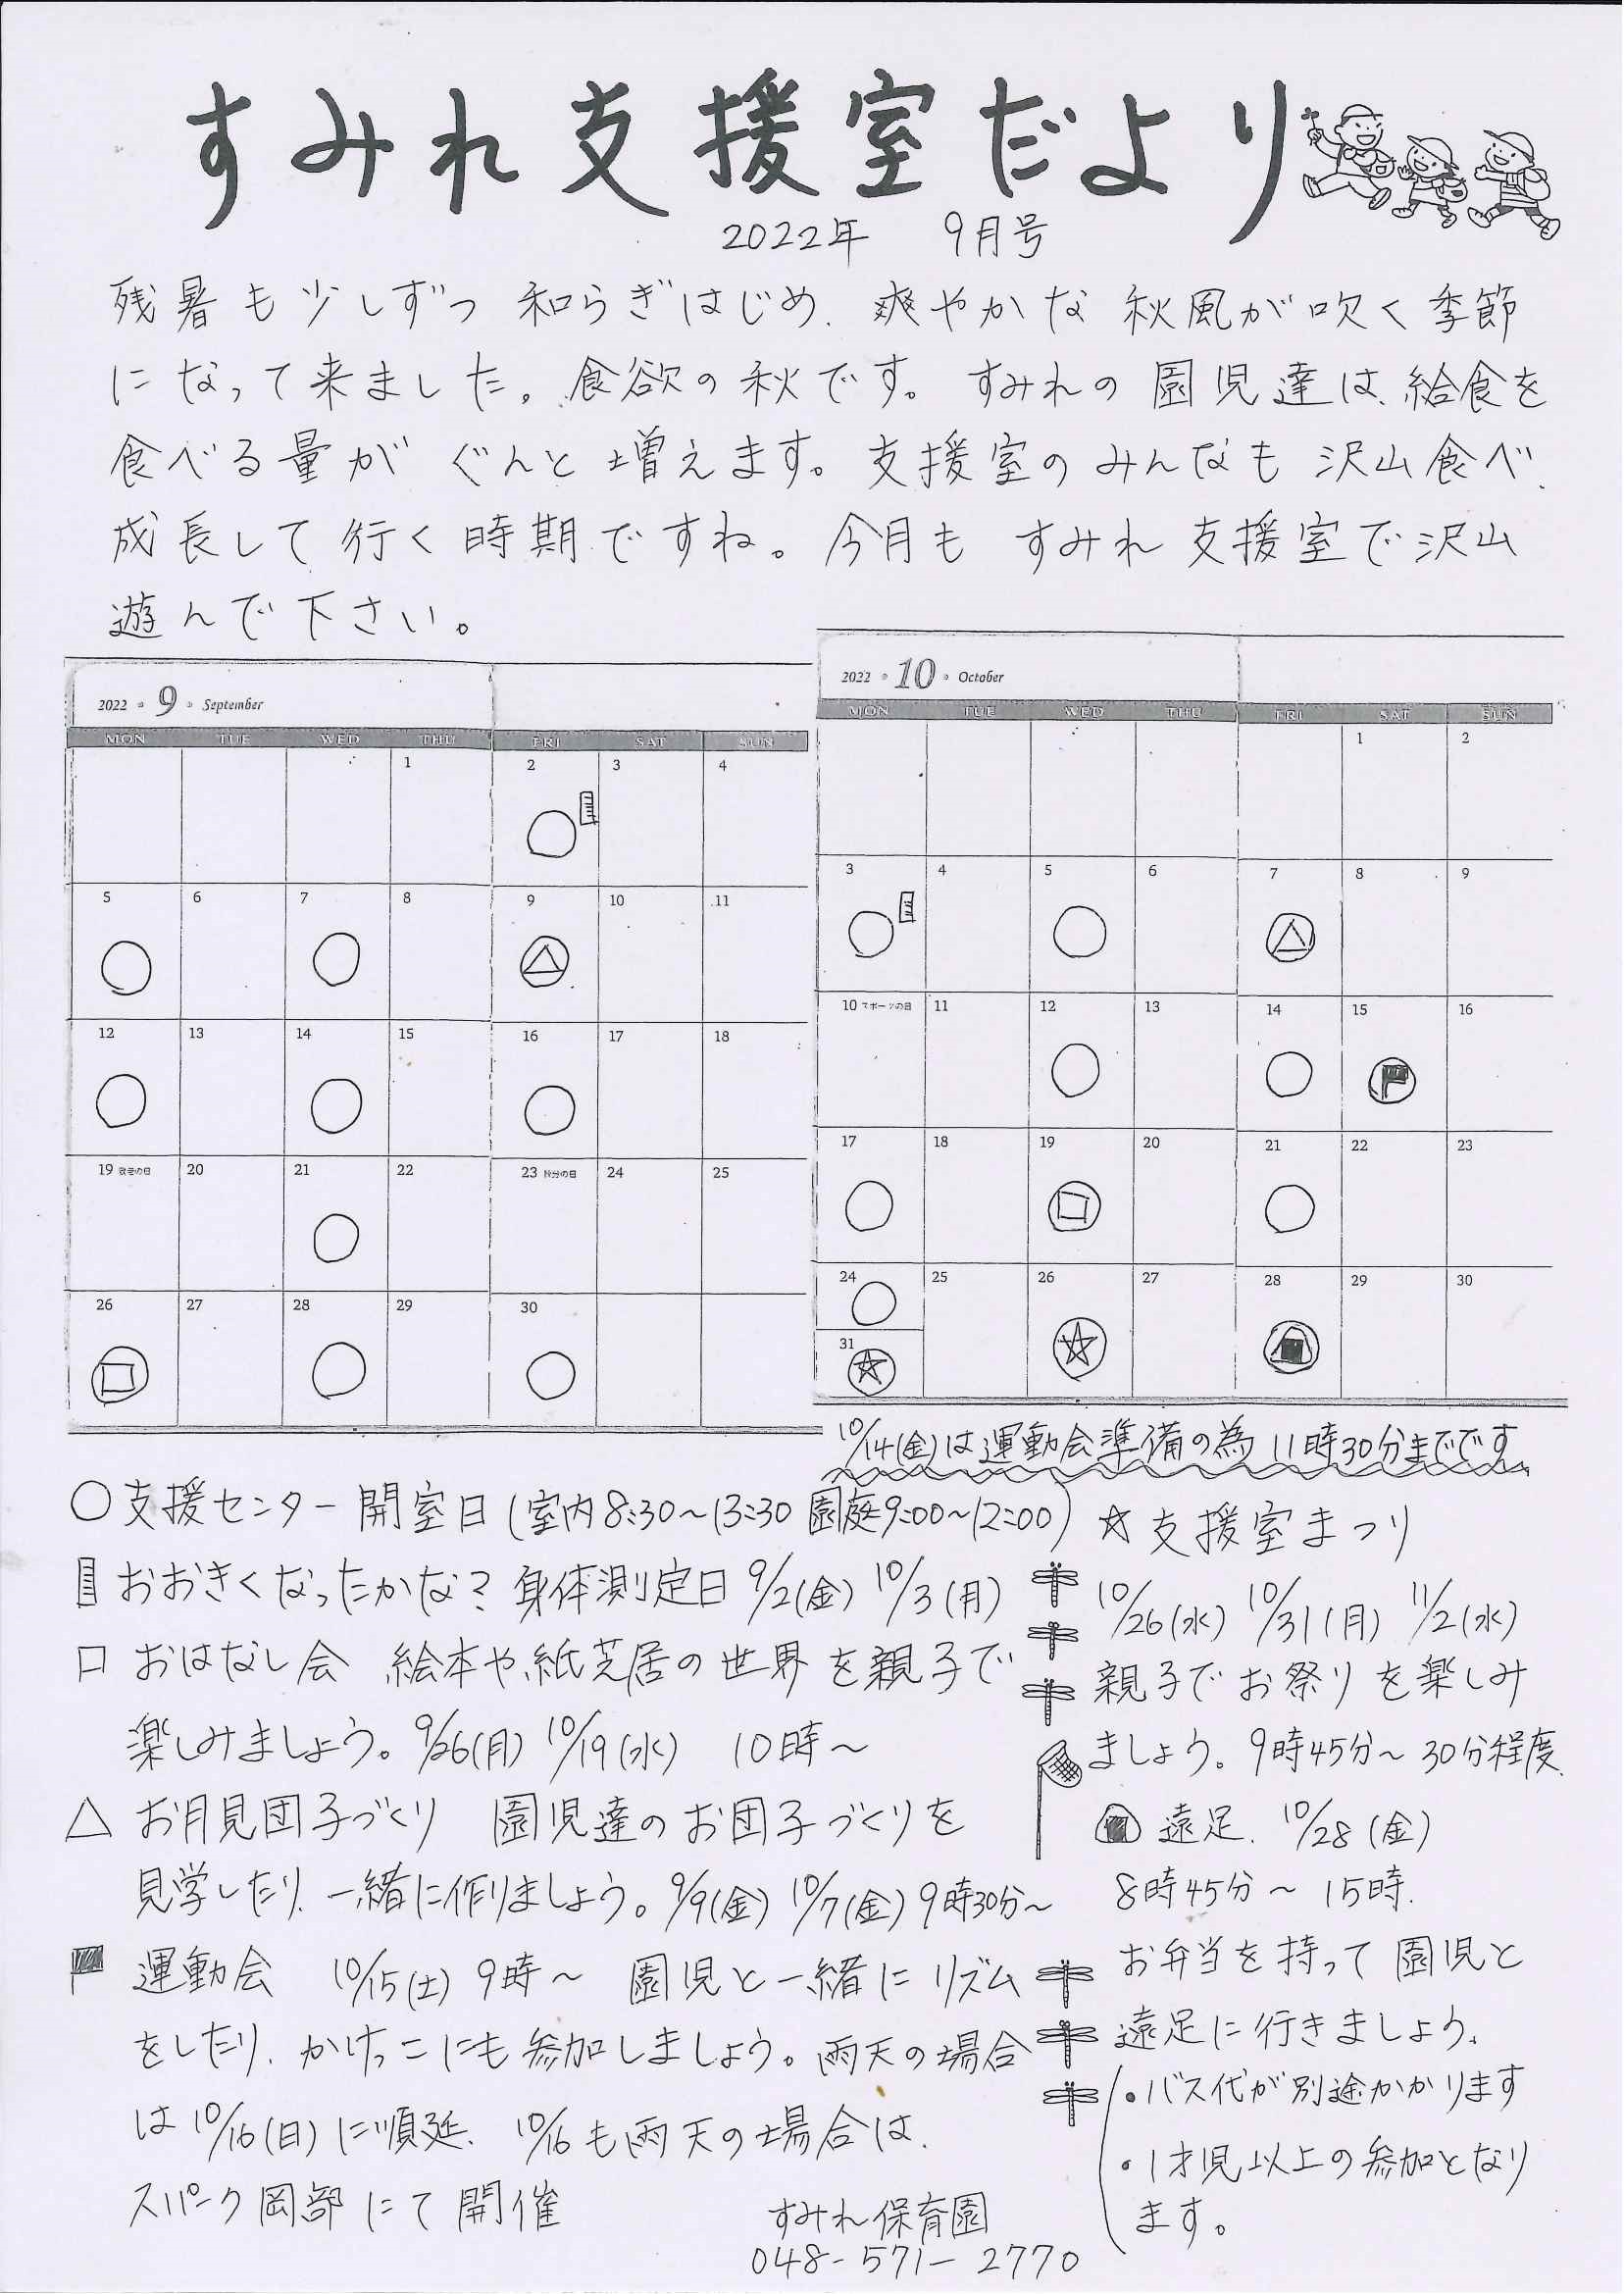 すみれ支援室だより
2022年 9月号
残暑も少しずつ和らぎはじめ、爽やかな秋風が吹く季節
になって来ました。食欲の秋です。すみれの園児達は、給食を
食べる量がぐんと増えます。支援室のみんなも沢山食べ、
成長して行く時期ですね。今月もすみれ支援室で沢山
遊んで下さい。
2022 9 September
MON TUE WED THU FRI SAT SUN
1 2 3 4
5 6 7 8 9 10 11
12 13 14 15 16 17 18
19 敬老の日 20 21 22 23 秋分の日 24 25
26 27 28 29 30
2022 10 October
MON TUE WED THU FRI SAT SUN
1 2
3 4 5 6 7 8 9
10 スポーツの日 11 12 13 14 15 16
17 18 19 20 21 22 23
24 25 26 27 28 29 30
31
10/14(金)は運動会準備の為 11時30分までです
○支援センター開室日(室内8:30～13:30 園庭9:00～12:00)
おおきくなったかな?身体測定日 9/2(金) 10/3(月)
□ おはなし会 絵本や紙芝居の世界を親子で
楽しみましょう。9/26(月) 10/19(水) 10時～
△ お月見団子づくり 園児達のお団子づくりを
見学したり、一緒に作りましょう。9/9(金) 10/7(金) 9時30分～
運動会 10/15(土) 9時～ 園児と一緒にリズム
をしたり、かけっこにも参加しましょう。雨天の場合
は10/16(日)に順延、10/16も雨天の場合は、
スパーク岡部にて開催
☆支援室まつり
10/26(水) 10/31(月) 11/2(水)
親子でお祭りを楽しみ
ましょう。9時45分～30分程度
遠足、10/28(金)
8時45分～15時、
お弁当を持って園児と
遠足に行きましょう。
・バス代が別途かかります
・1才児以上の参加となり
ます。
すみれ保育園
048-571-2770